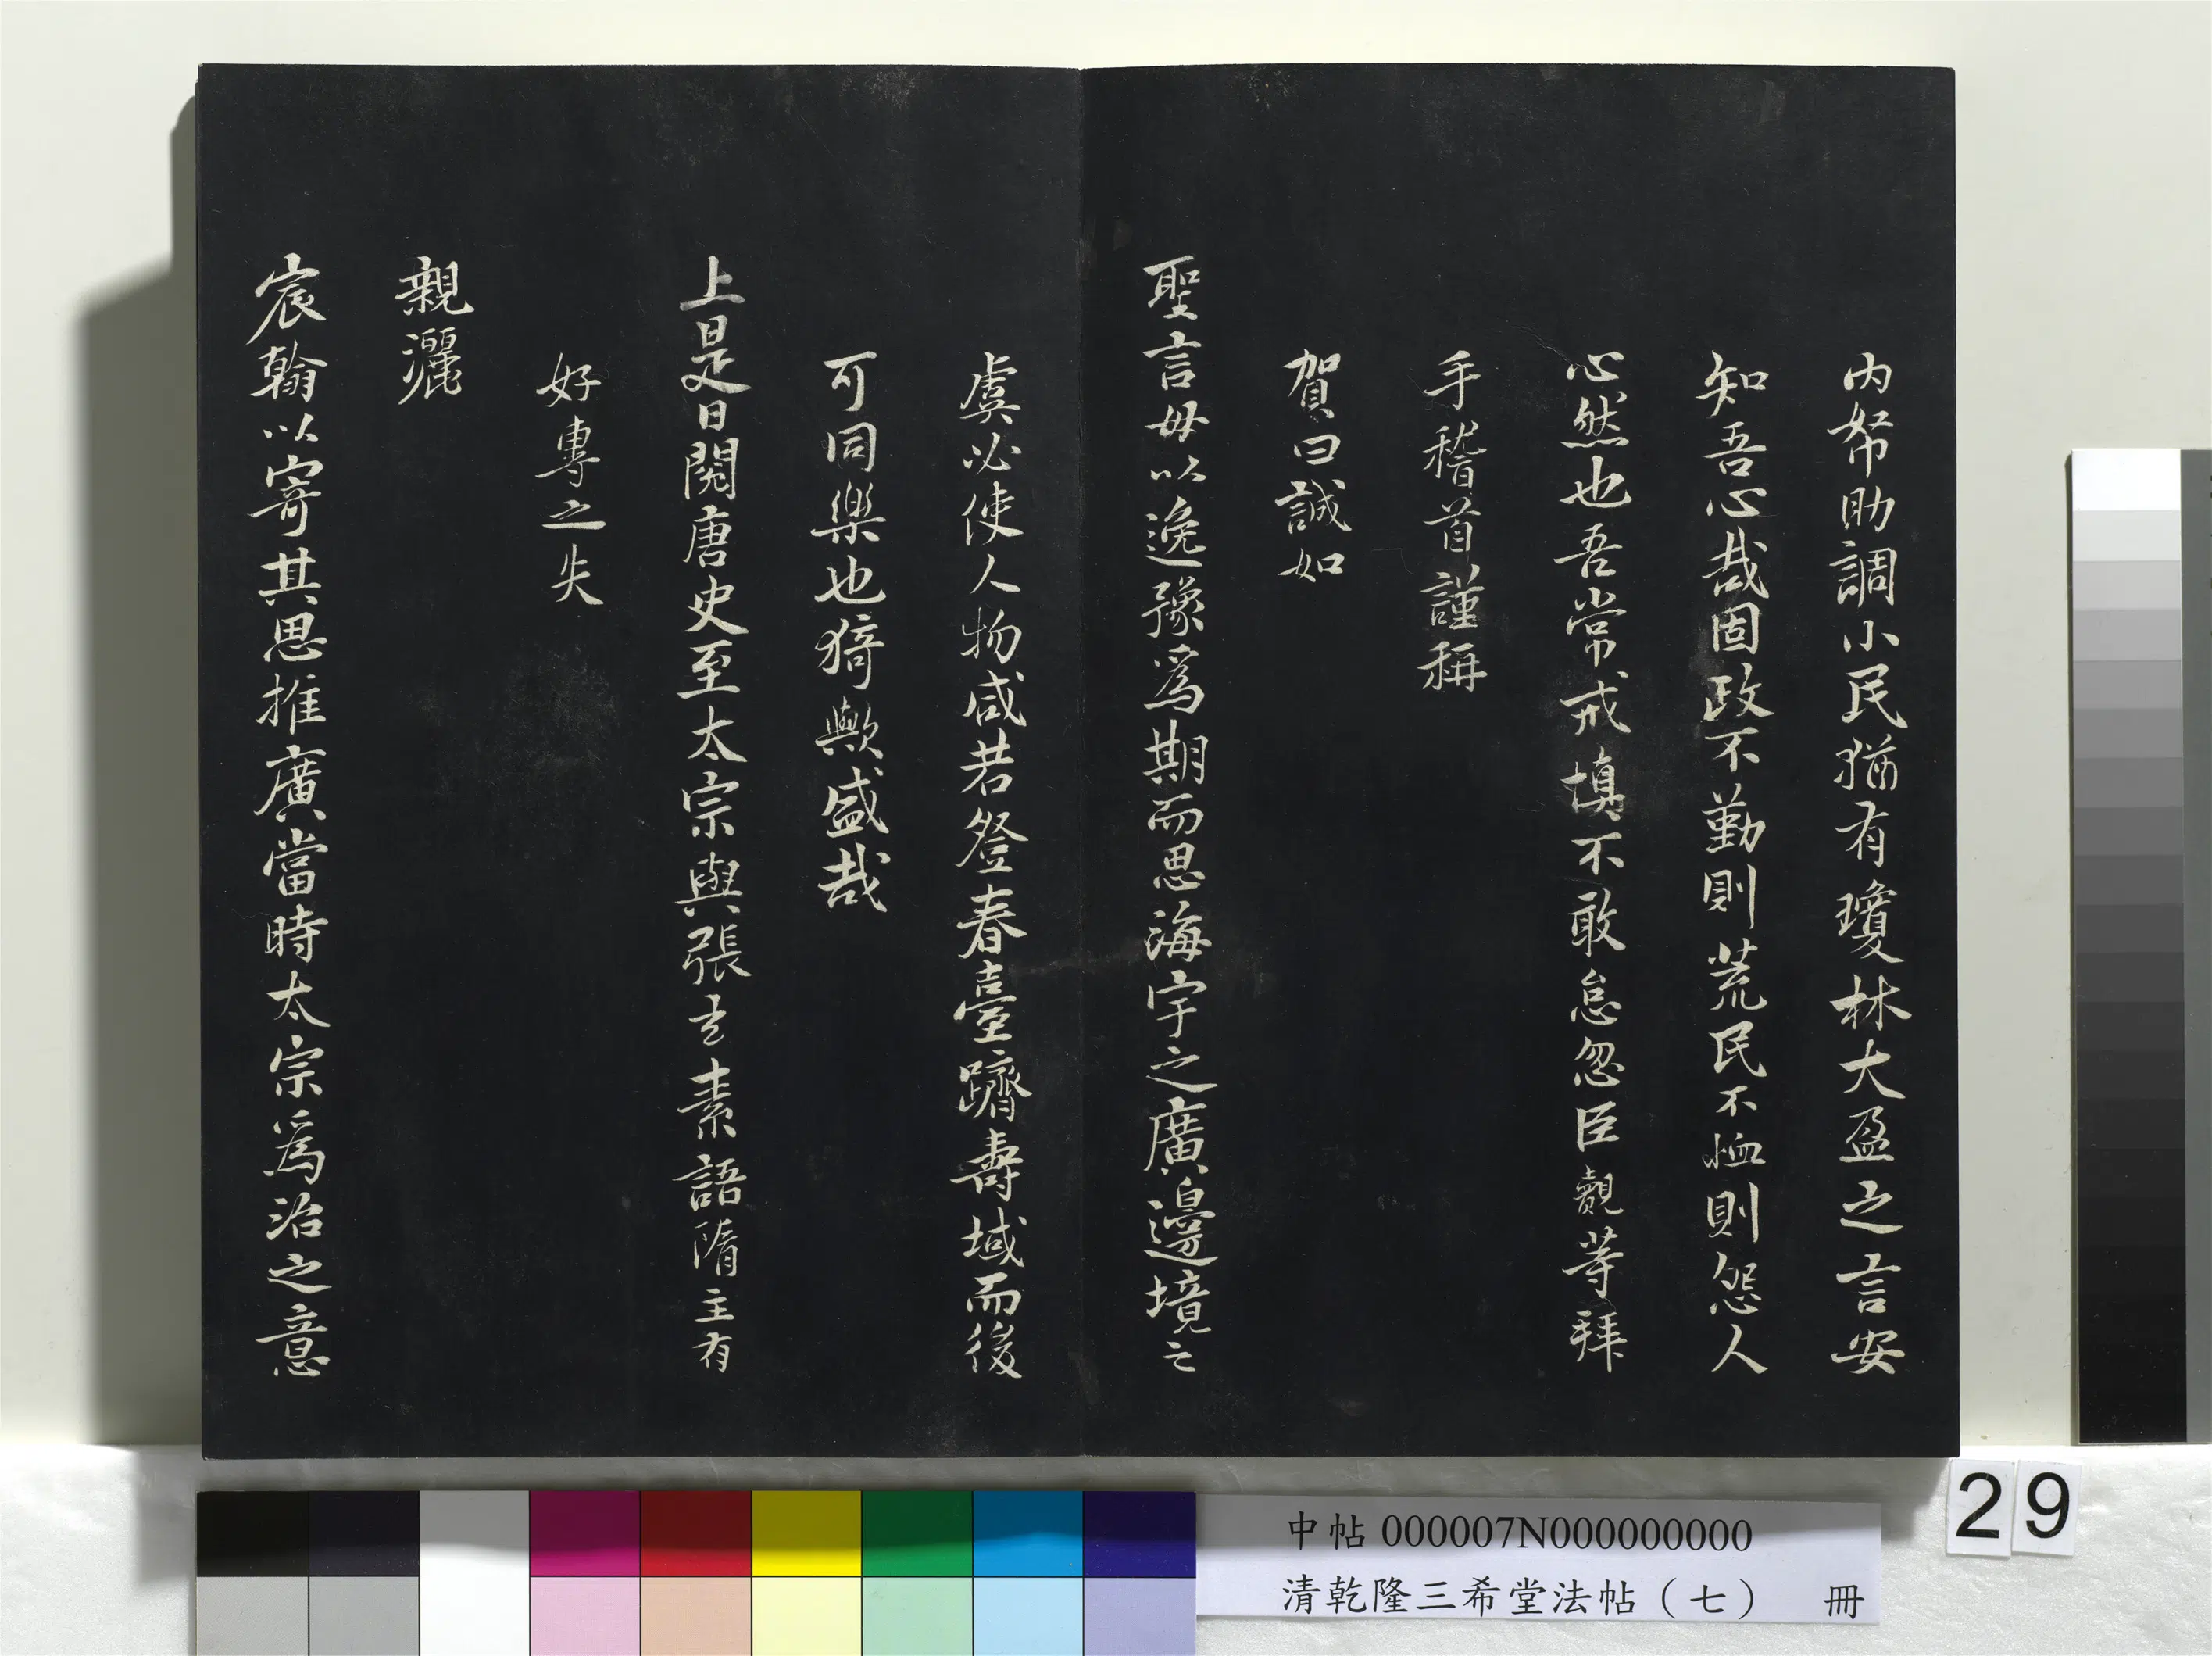 內帑助調小民猶有瓊林大盈之言安
知吾心哉固政不勤則荒民不恤則怨人
心然也吾常戒慎不敢怠忽臣觀等拜
手稽首謹稱
賀曰誠如
聖言毋以逸豫為期而思海宇之廣邊境之
虞必使人物咸若登春臺躋壽域而後
可同樂也猗歟盛哉
上是日閱唐史至太宗與張玄素語隋主有
好專之失
親灑
宸翰以寄其思推廣當時太宗為治之意
29
中帖 000007N000000000
清乾隆三希堂法帖（七） 冊